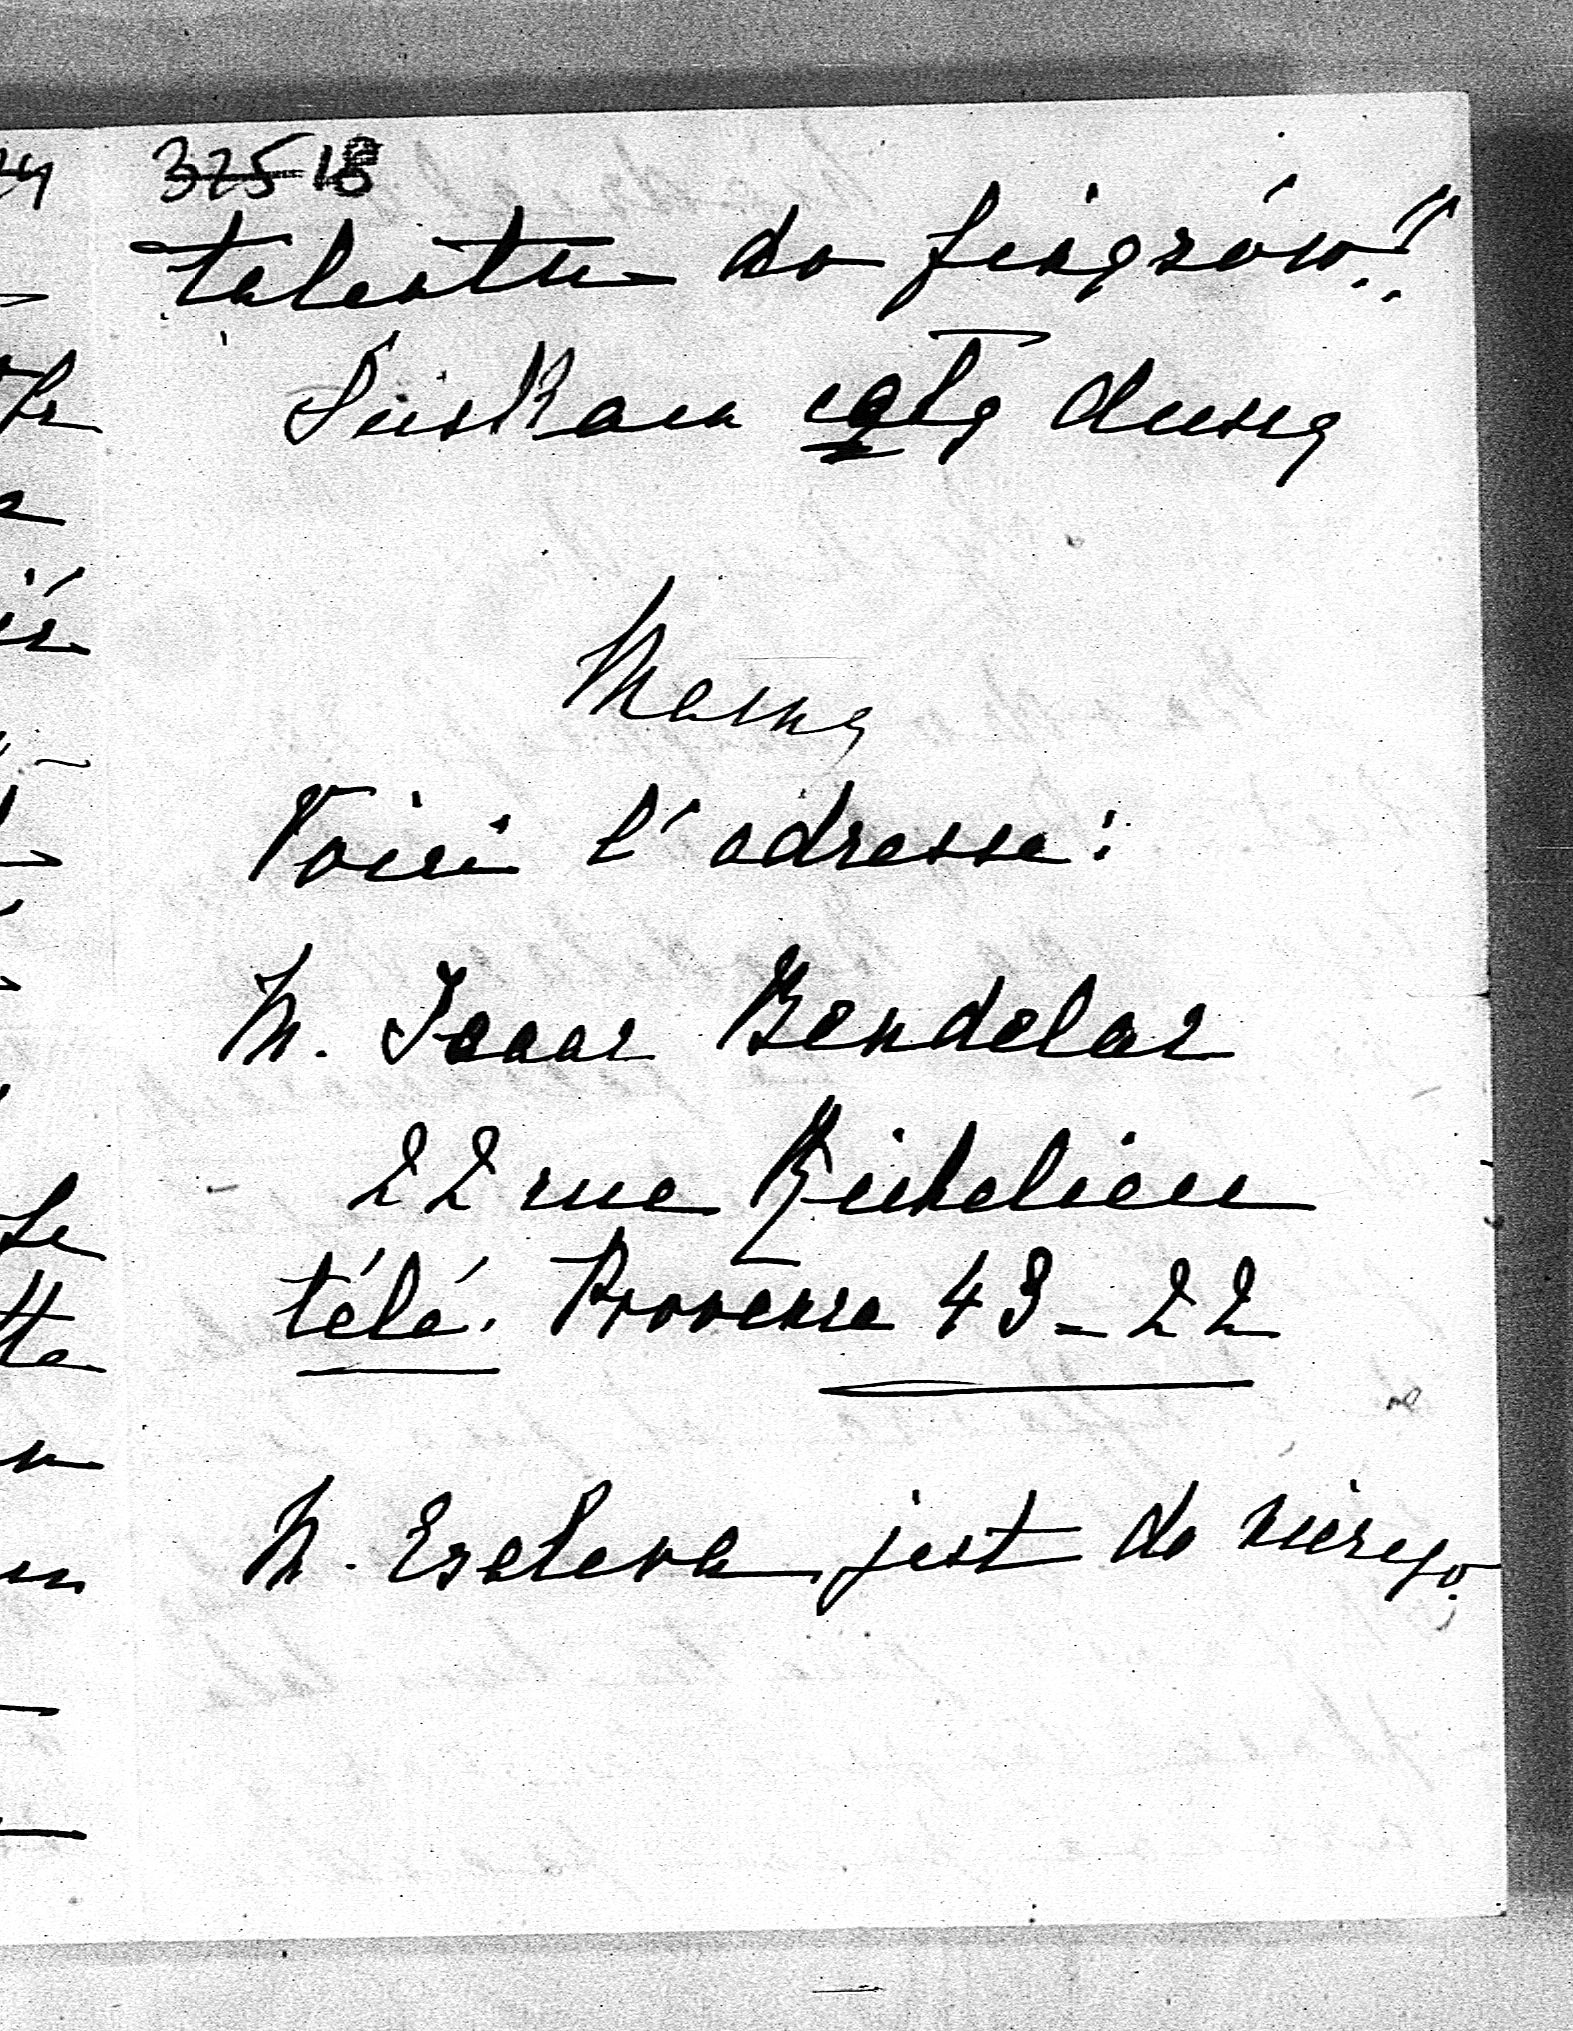 32518
talentu do fingrów!!
Ściskam całą duszą
Maryą
Voici l'adresse:
M. Isaac Bendelac
22 rue Richelieu
télé. Provence 43-22
M. Escalera jest do niczego.